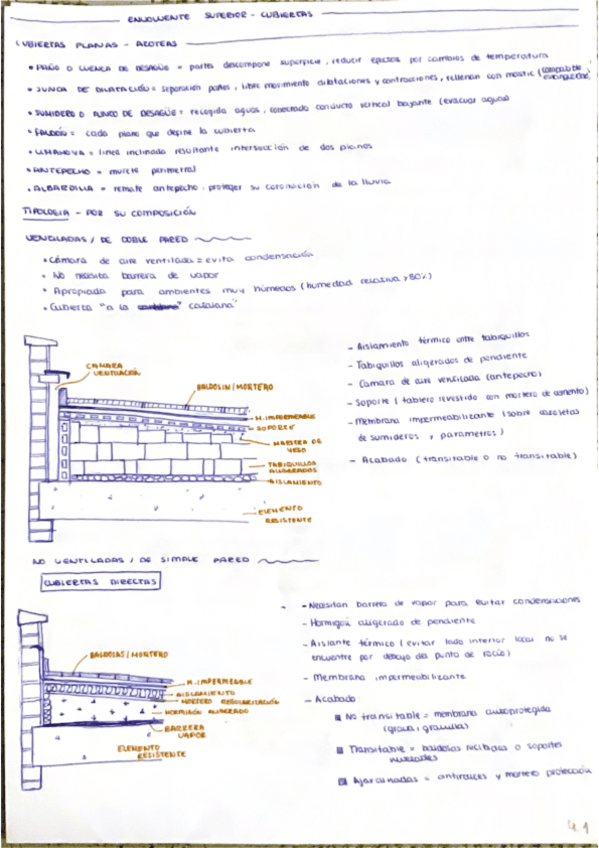 ENVOLVENTE SUPERIOR - CUBIERTAS
CUBIERTAS PLANAS - AZOTEAS
• PAÑO O CUENCA DE DESAGÜE = partes descompone superficie, reducir efectos por cambios de temperatura
• JUNTA DE DILATACIÓN = separación paños, libre movimiento dilataciones y contracciones, rellenan con mastic (compatible/
• SUMIDERO O PUNTO DE DESAGÜE = recogida aguas, conectado conducto vertical bajante (evacuar aguas)
• FALDÓN = cada plano que define la cubierta
• LIMAHOYA = línea inclinada resultante intersección de dos planos
• ANTEPECHO = murete perimetral
• ALBARDILLA = remate antepecho, proteger su coronación de la lluvia
TIPOLOGIA - POR SU COMPOSICIÓN
VENTILADAS / DE DOBLE PARED
• Cámara de aire ventilada = evita condensación
• No necesita barrera de vapor
• Apropiada para ambientes muy húmedos (humedad relativa > 80%)
• Cubierta "a la catalana"
CAMARA VENTILACIÓN
BALDOLIN / MORTERO
M. IMPERMEABLE
SOPORTE
MAESTRA DE YESO
TABIQUILLOS ALIGERADOS
AISLAMIENTO
ELEMENTO RESISTENTE
- Aislamiento térmico entre tabiquillos
- Tabiquillos aligerados de pendiente
- Camara de aire ventilada (antepecho)
- Soporte (tablero revestido con mortero de cemento)
- Membrana impermeabilizante (sobre cazoletas
de sumideros y parametros)
- Acabado (transitable o no transitable)
NO VENTILADAS / DE SIMPLE PARED
CUBIERTAS DIRECTAS
BALDOSAS / MORTERO
M. IMPERMEABLE
AISLAMIENTO
MORTERO REGULARIZACIÓN
HORMIGÓN ALIGERADO
BARRERA VAPOR
ELEMENTO RESISTENTE
- Necesitan barrera de vapor para evitar condensaciones
- Hormigón aligerado de pendiente
- Aislante térmico (evitar lado interior local no se
encuentre por debajo del punto de rocío)
- Membrana impermeabilizante
- Acabado:
No transitable = membrana autoprotegida
(grava, granulas)
Transitable = baldosas recibidas o soportes
nivelantes
Ajardinadas = antiraices y mortero protección
4.1